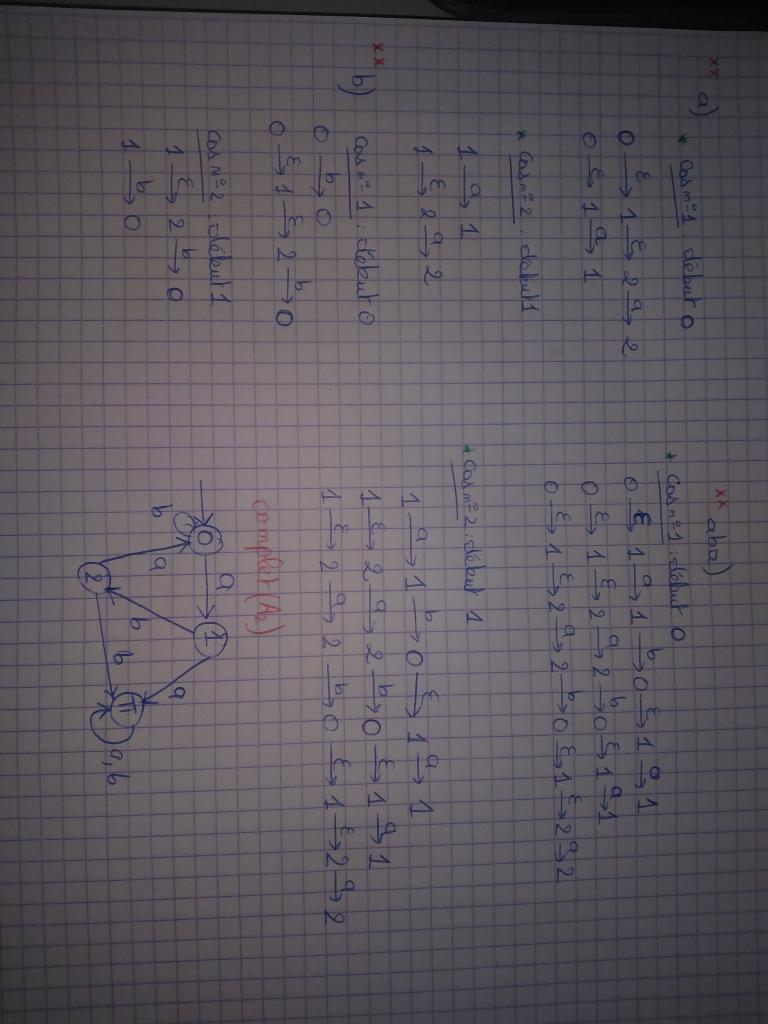 xx a) * Cas n°=1: début 0
0 –ε→ 1 –ε→ 2 –a→ 2
0 –ε→ 1 –a→ 1
* Cas n°=2: début 1
1 –a→ 1
1 –ε→ 2 –a→ 2
xx b) Cas n°=1: début 0
0 –b→ 0
0 –ε→ 1 –ε→ 2 –b→ 0
Cas n°=2: début 1
1 –ε→ 2 –b→ 0
1 –b→ 0
xx aba)
* Cas n°=1: début 0
0 –ε→ 1 –a→ 1 –b→ 0 –ε→ 1 –a→ 1
0 –ε→ 1 –ε→ 2 –a→ 2 –b→ 0 –ε→ 1 –a→ 1
0 –ε→ 1 –ε→ 2 –a→ 2 –b→ 0 –ε→ 1 –ε→ 2 –a→ 2
* Cas n°=2: début 1
1 –a→ 1 –b→ 0 –ε→ 1 –a→ 1
1 –ε→ 2 –a→ 2 –b→ 0 –ε→ 1 –a→ 1
1 –ε→ 2 –a→ 2 –b→ 0 –ε→ 1 –ε→ 2 –a→ 2
0 a 1
b a b b a
2 π a,b